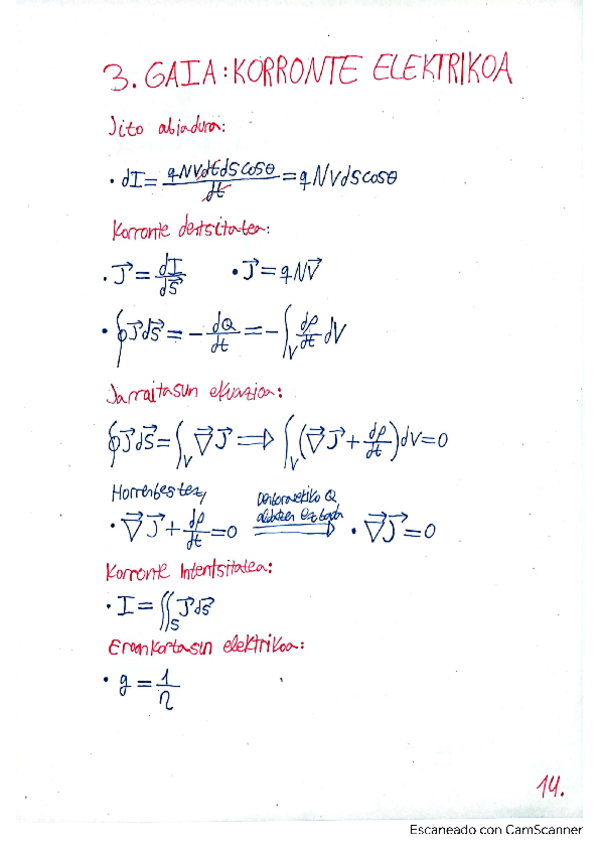 3. GAIA: KORRONTE ELEKTRIKOA
Jito abiadura:
• dI = qNVdtdScosθ / dt = qNVdScosθ
Korronte dentsitatea:
• J⃗ = dI / dS⃗ • J⃗ = qNV⃗
• ∮J⃗dS⃗ = - dQ/dt = -∫_V dρ/dt dV
Jarraitasun ekuazioa:
∮J⃗dS⃗ = ∫_V ∇⃗J⃗ ⟹ ∫_V (∇⃗J⃗ + dρ/dt)dV = 0
Horrenbestez, Denborarekiko Q
aldatzen ez bada
• ∇⃗J⃗ + dρ/dt = 0 ⟹ • ∇⃗J⃗ = 0
Korronte Intentsitatea:
• I = ∬_S J⃗dS⃗
Eroankortasun elektrikoa:
• g = 1/η
14.
Escaneado con CamScanner